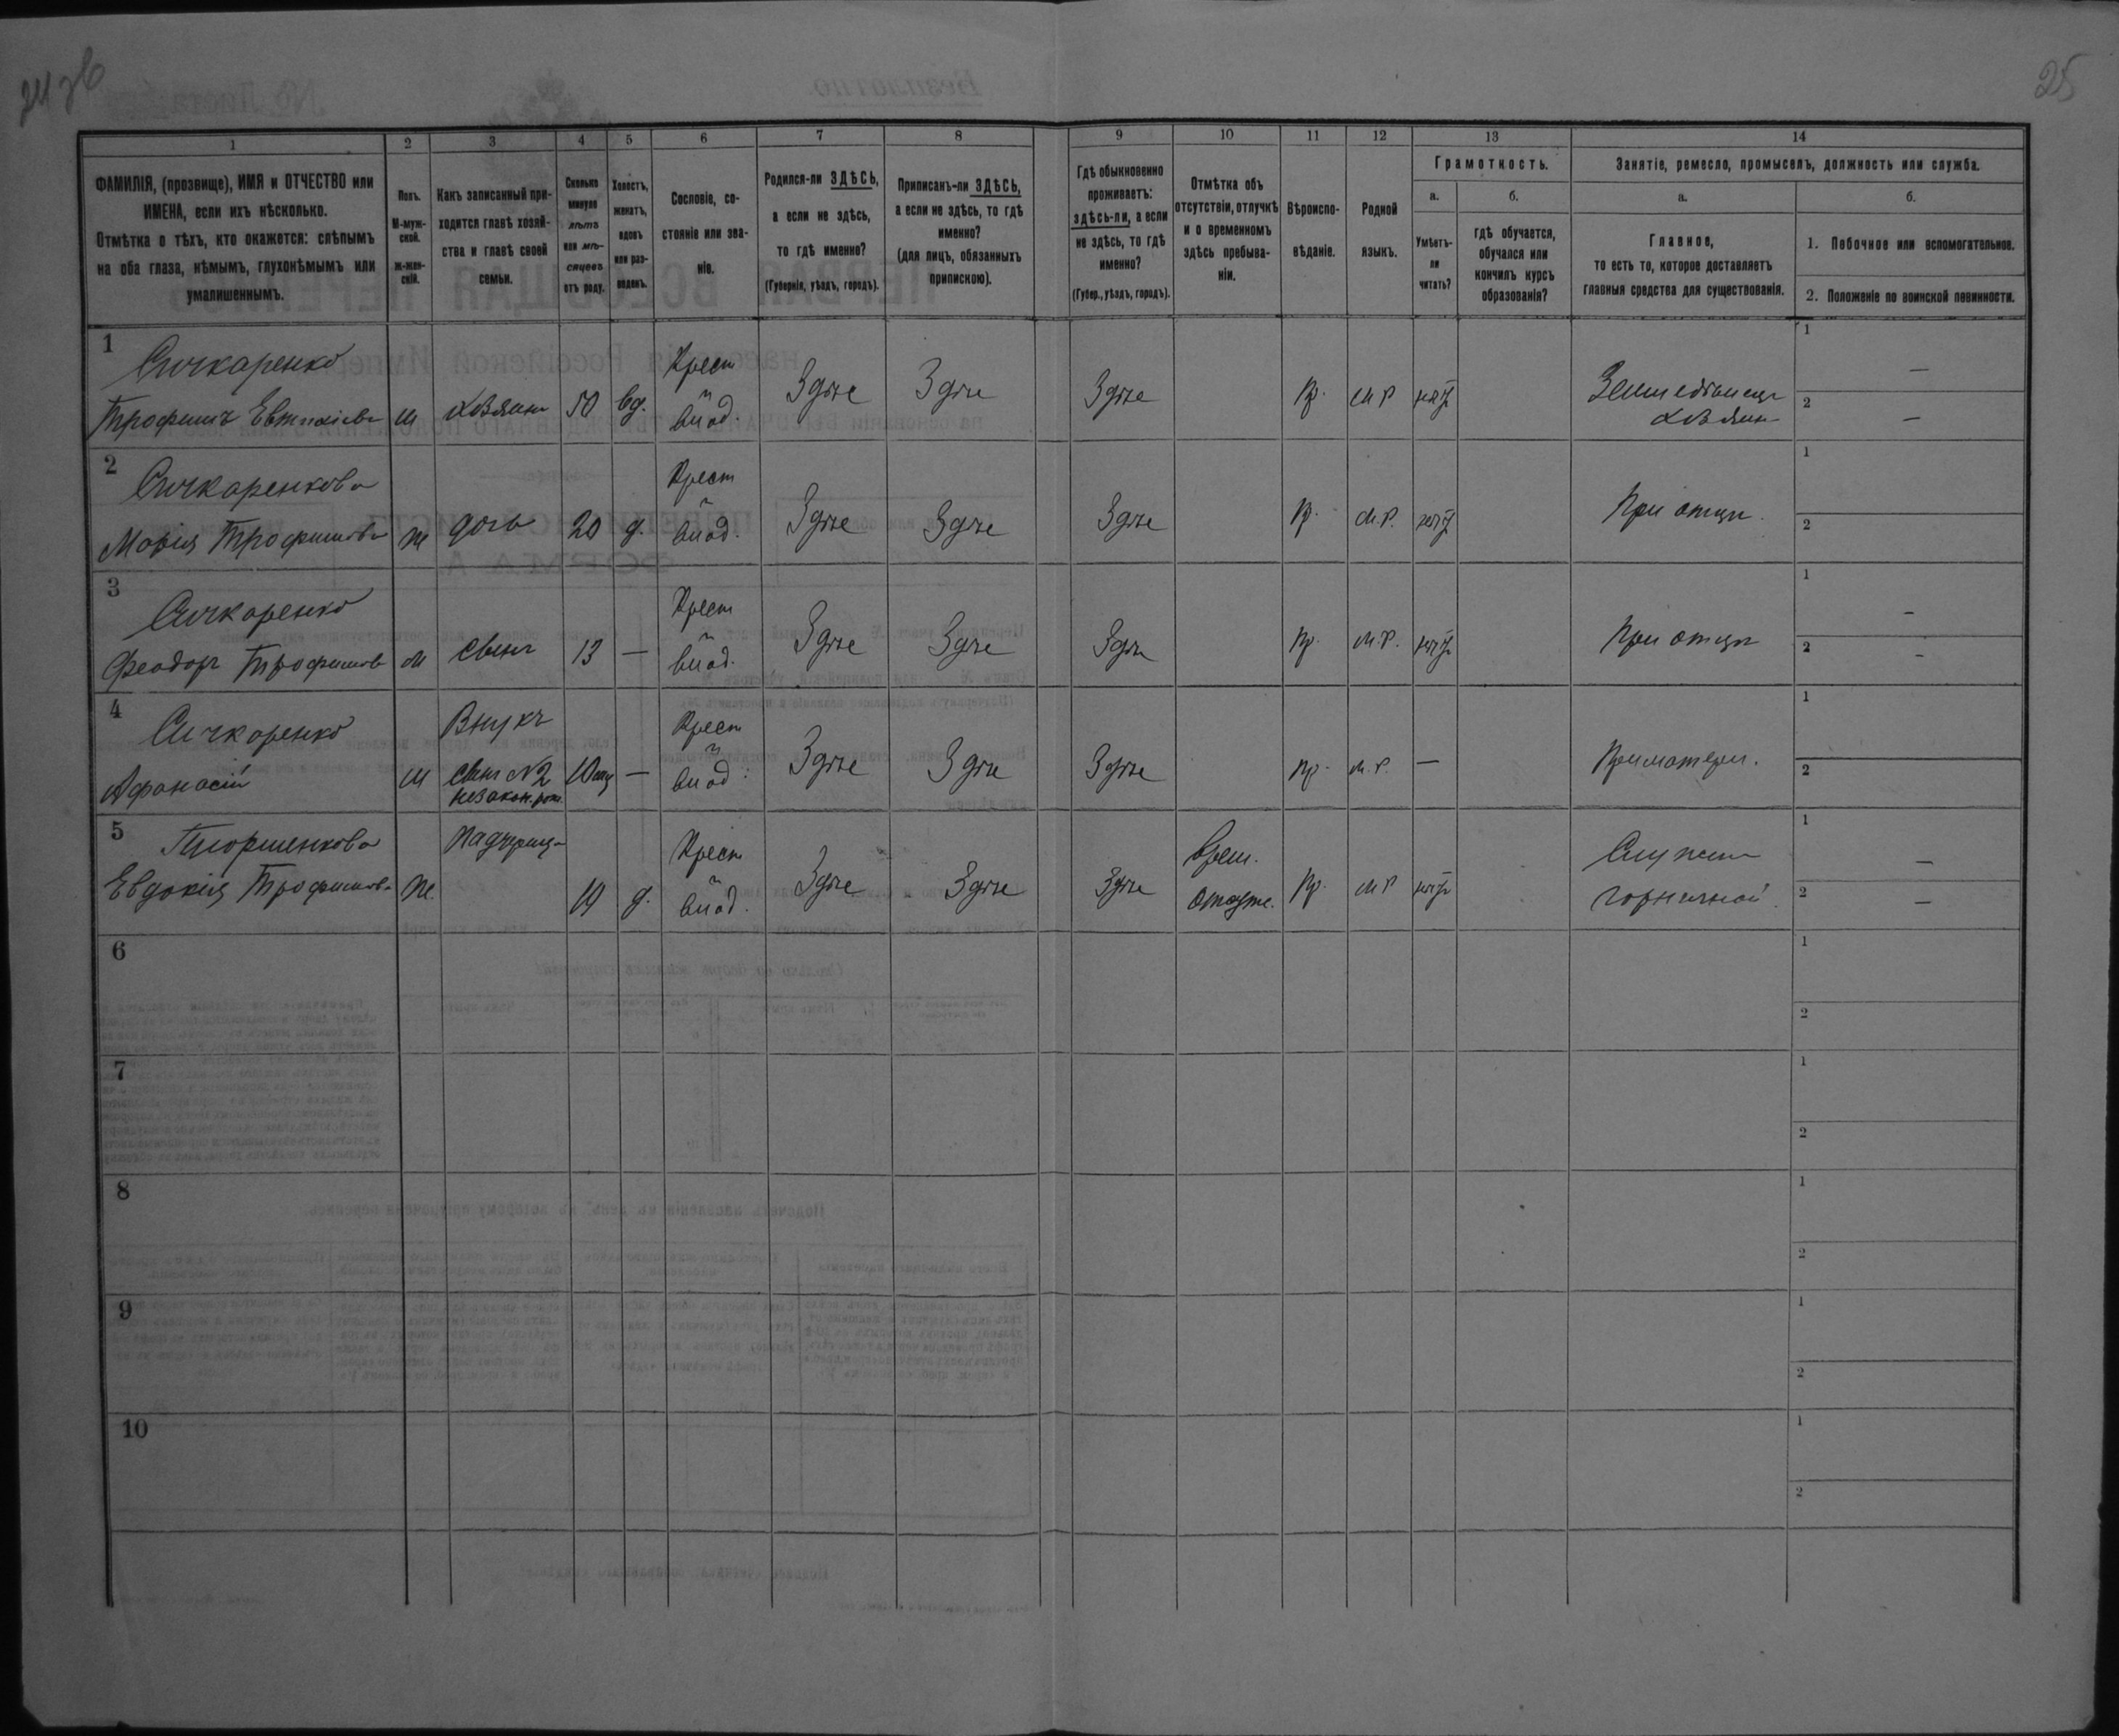 25
1
2
3
4
5
6
7
8
9
10
11
12
13
14
ФАМИЛІЯ, (прозвище), ИМЯ и ОТЧЕСТВО или
ИМЕНА, если ихъ нѣсколько.
Отмѣтка о тѣхъ, кто окажется: слѣпымъ
на оба глаза, нѣмымъ, глухонѣмымъ или
умалишеннымъ.
Полъ.
М-муж-
ской.
Ж-жен-
скій.
Какъ записанный при-
ходится главѣ хозяй-
ства и главѣ своей
семьи.
Сколько
минуло
лѣтъ
или мѣ-
сяцевъ
отъ роду.
Холостъ,
женатъ,
вдовъ
или раз-
веденъ.
Сословіе, со-
стояніе или зва-
ніе.
Родился-ли ЗДѢСЬ,
а если не здѣсь,
то гдѣ именно?
(Губернія, уѣздъ, городъ).
Приписанъ-ли ЗДѢСЬ,
а если не здѣсь, то гдѣ
именно?
(для лицъ, обязанныхъ
припискою).
Гдѣ обыкновенно
проживаетъ:
здѣсь-ли, а если
не здѣсь, то гдѣ
именно?
(Губер., уѣздъ, городъ).
Отмѣтка объ
отсутствіи, отлучкѣ
и о временномъ
здѣсь пребыва-
ніи.
Вѣроиспо-
вѣданіе.
Родной
языкъ.
Грамотность.
а.
Умѣетъ-
ли
читать?
б.
гдѣ обучается,
обучался или
кончилъ курсъ
образованія?
Занятіе, ремесло, промыселъ, должность или служба.
а.
Главное,
то есть то, которое доставляетъ
главныя средства для существованія.
б.
1. Побочное или вспомогательное.
2. Положеніе по воинской повинности.
1
Сичкаренко
Трофимъ
м
хозяинъ
50
вд.
Крест
Здѣсь
Здѣсь
Здѣсь
пр.
м р
нѣтъ
хозяинъ
1
—
2
—
2
Сичкаренкова
Марія Трофимова
ж
дочь
20
д.
Крест
Здѣсь
Здѣсь
Здѣсь
пр.
м.р.
нѣтъ
При отцѣ
1
2
3
Сичкаренко
Феодоръ Трофимов
м
сынъ
13
—
Крест
Здѣсь
Здѣсь
Здѣсь
пр.
м.р.
нѣтъ
При отцѣ
1
—
2
-
4
Сичкаренко
Афанасій
м
Внукъ
сынъ №2
незакон. рож
10 мц
—
Крест
Здѣсь
Здѣсь
Здѣсь
пр.
м.р.
—
При матери.
1
2
5
Евдокія Трофимова
ж.
Падчерица
19
д.
Крест
Здѣсь
Здѣсь
Здѣсь
врем.
отсутс.
пр.
м р
нѣтъ
Служит
горничной.
1
—
2
—
6
1
2
7
1
2
8
1
2
9
1
2
10
1
2